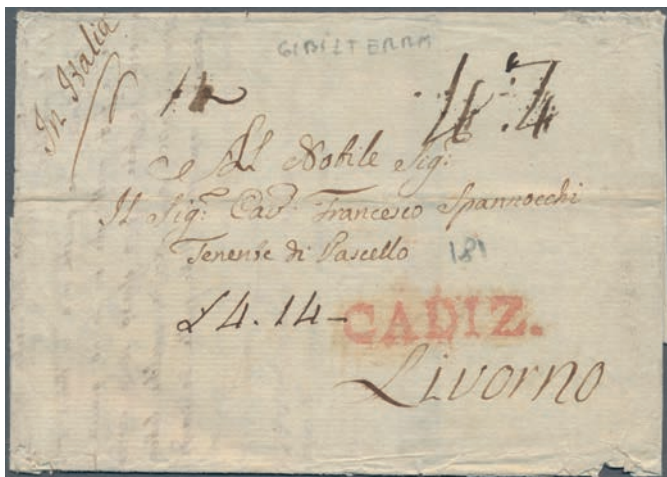 In Italia
GIBILTERRA
4.7
Al Nobile Sig:
Il Sig: Cav: Francesco Spannocchi
Tenente di Vascello
181
£4.14-
CADIZ.
Livorno